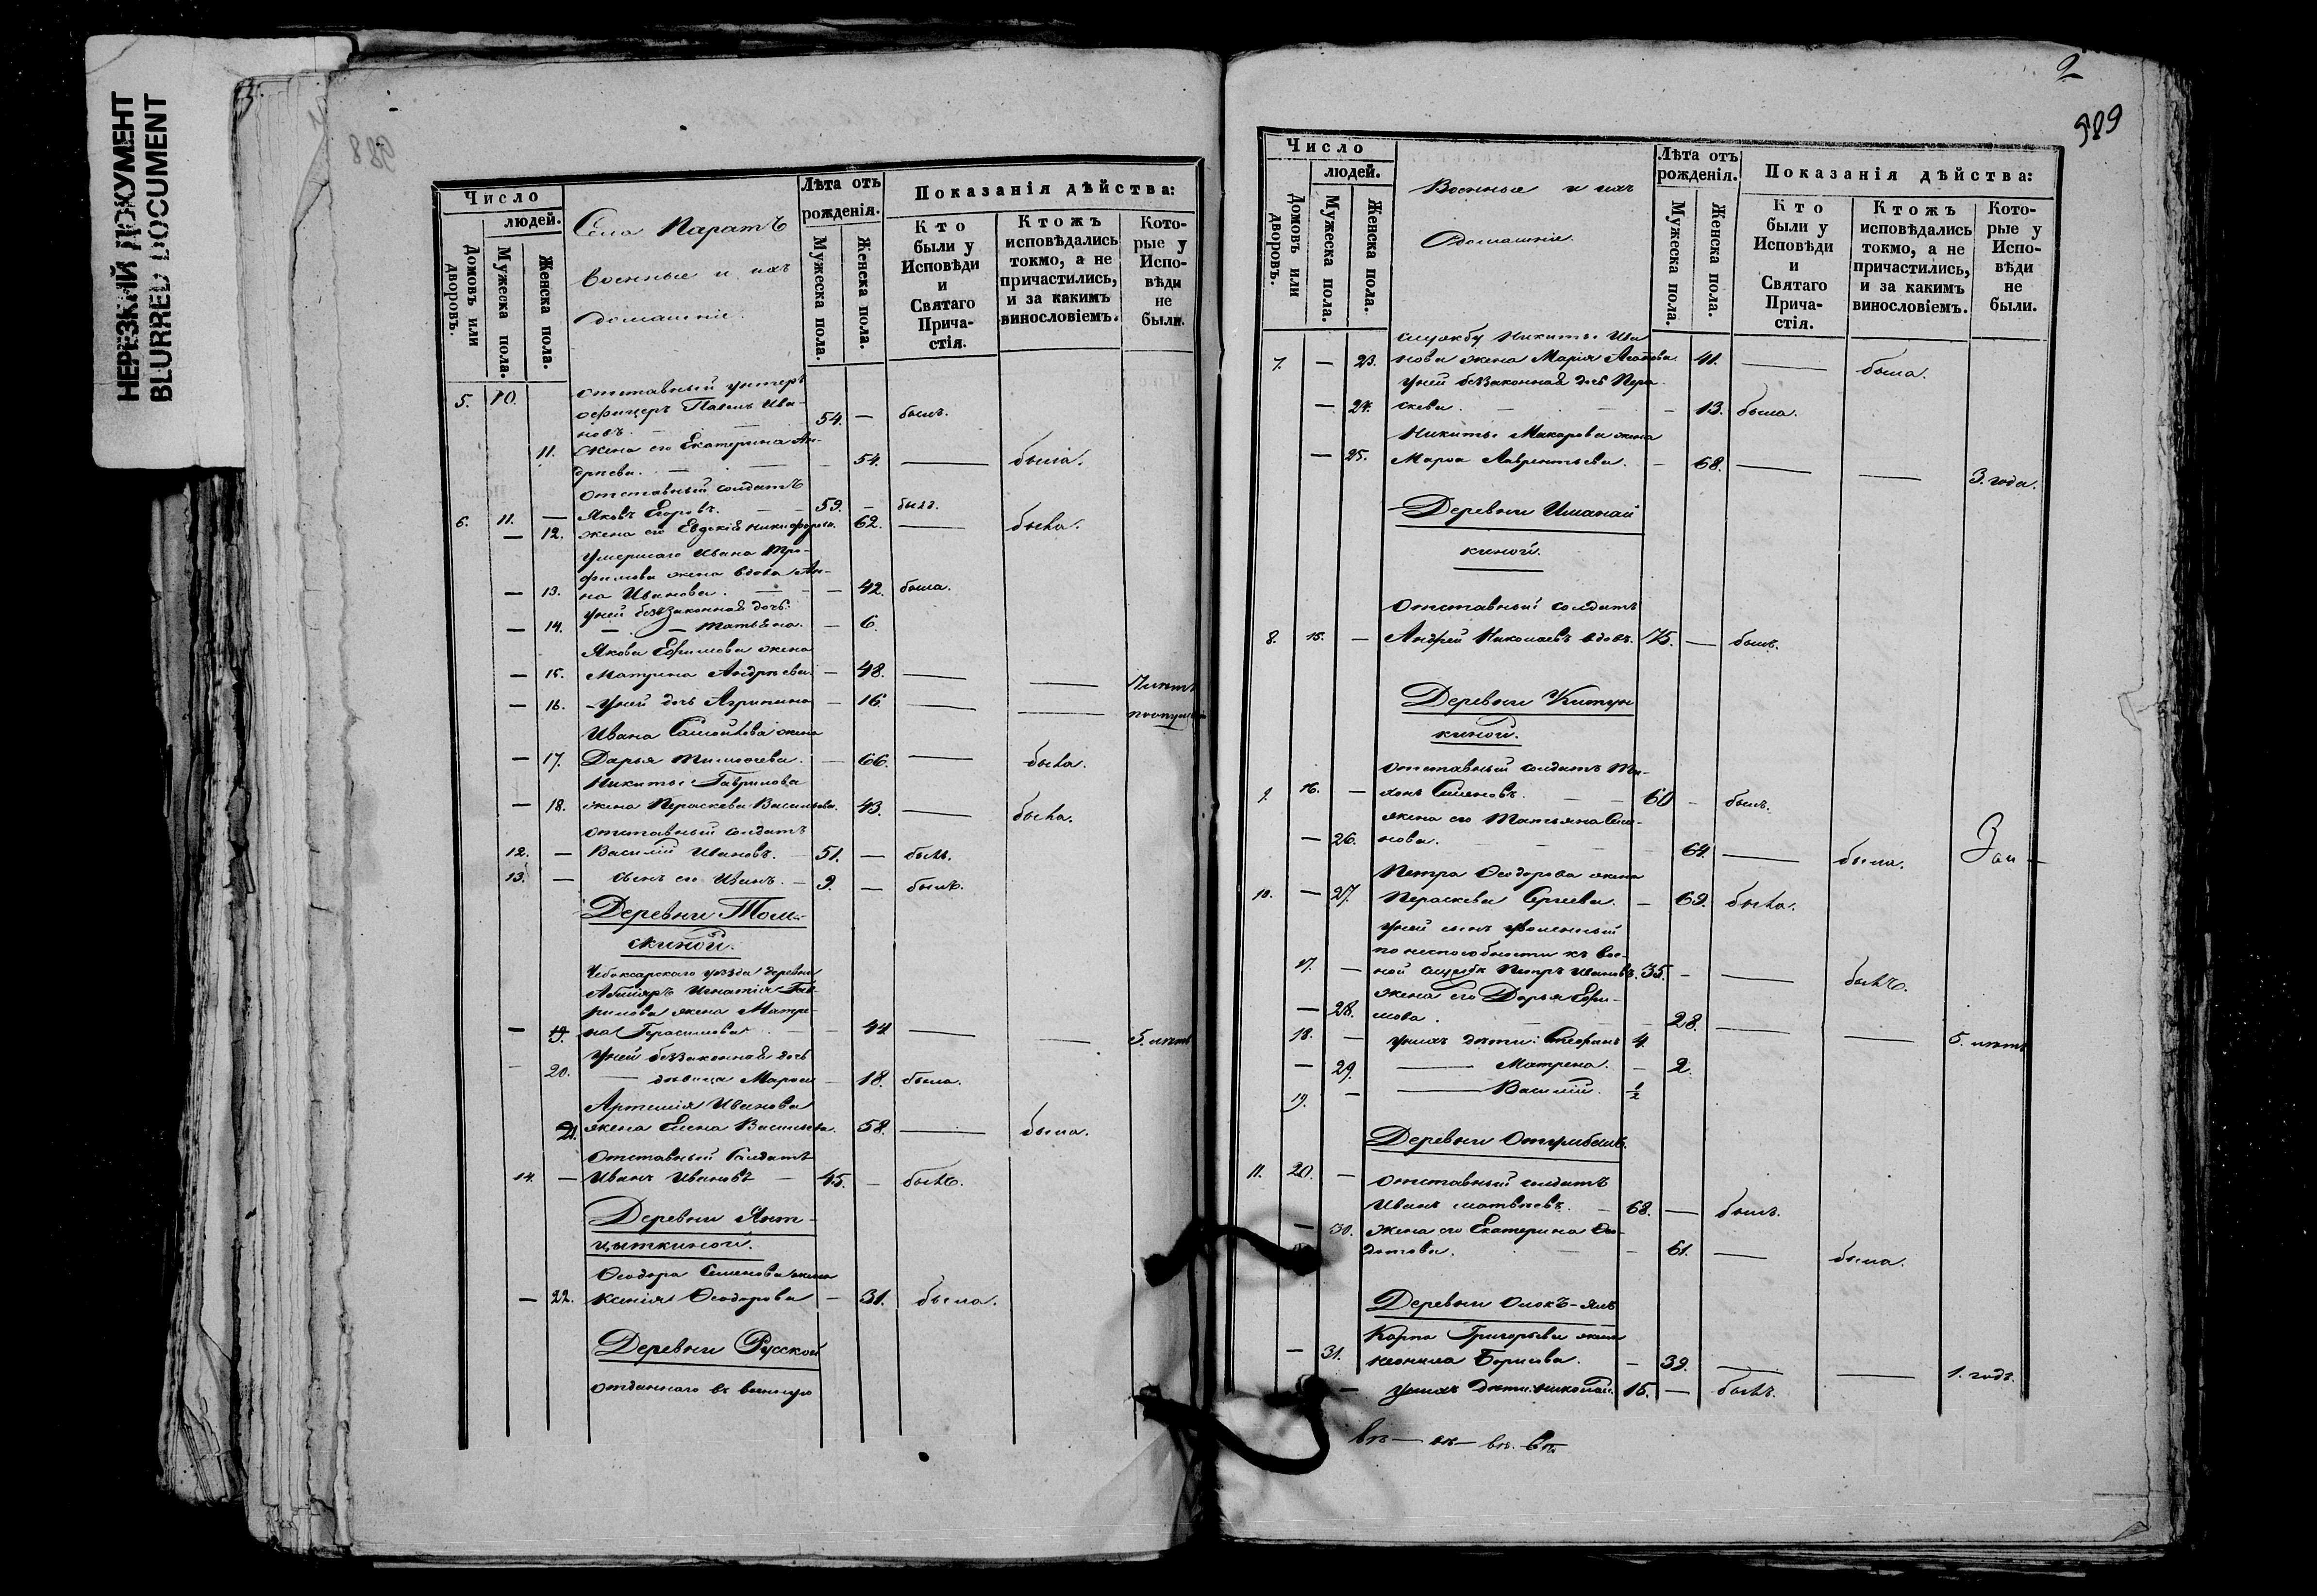 НЕРЕЗКИЙ ДОКУМЕНТ
BLURRED DOCUMENT
988
Число
людей.
Домовъ или дворовъ.
Мужеска пола.
Женска пола.
Села Паратъ
военные и ихъ
домашніе.
Лѣта отъ рожденія.
Мужеска пола.
Женска пола.
Показанія дѣйства:
Кто были у Исповѣди и Святаго Причастія.
Ктожъ исповѣдались токмо, а не причастились, и за какимъ винословіемъ.
Которые у Исповѣди не были.
отставный унтеръ
5. 10. офицеръ Павелъ Ива-
новъ. 54. — былъ.
11. Жена его Екатерина Ан-
дреева. — 54. — была.
Отставный солдатъ
6. 11. — Яковъ Егоровъ. 59. — былъ.
— 12. жена его Евдокія Никифорова. 62. — была.
Умершаго Ивана Тро-
фимова жена вдова Ан-
— 13. на Иванова. — 42. была.
у ней беззаконная дочь:
— 14. — — Татьяна. — 6.
Якова Ефимова жена
— 15. Матрина Андреева. — 48. — — 7 лѣтъ
— 16. у ней дочь Агрипина — 16. — —
Ивана Самойлова жена
— 17. Дарья Тимофеева. — 66. — была.
Никиты Гаврилова
— 18. жена Параскева Васильева. 43. — была.
отставный солдатъ
12. — Василій Ивановъ. — 51. — былъ.
13. — сынъ его Иванъ. — 9. — былъ.
Деревни Том-
скиной.
Чебоксарскаго уѣзда деревни
Игнатія Гав-
рилова жена Матре-
— 19. на Герасимова — 44 — — 5. лѣтъ
У ней беззаконная дочь
— 20. — девица Марѳа — 18. была.
Артемія Иванова
21. жена Елена Васильева. 58. — была.
Отставный Солдатъ
14. — Иванъ Ивановъ — 45. — былъ.
Деревни Янт-
цыткиной.
Ѳеодора Семенова жена
— 22. Ксенія Ѳеодорова — 31. была.
Деревни Русской
отданнаго въ военную
2
989
Число
людей.
Домовъ или дворовъ.
Мужеска пола.
Женска пола.
Военные и ихъ
домашніе.
Лѣта отъ рожденія.
Мужеска пола.
Женска пола.
Показанія дѣйства:
Кто были у Исповѣди и Святаго Причастія.
Ктожъ исповѣдались токмо, а не причастились, и за какимъ винословіемъ.
Которые у Исповѣди не были.
службу Никиты Ива
7. — 23. нова жена Марія Агапова. 41. — была.
у ней беззаконная дочь Пара
— 24. скева. — 13. была.
Никиты Макарова жена
— 25. Марѳа Лаврентьева. — 68. — — 3. года.
Деревни Иманай
киной.
Отставный солдатъ
8. 15. — Андрей Николаевъ вдовъ. 75. — былъ.
Деревни Китун
киной.
отставный солдатъ Ти-
9. 16. — хонъ Семеновъ. 60 — былъ.
жена его Татьяна Семе-
— 26. нова. 64. — была.
Петра Ѳеодорова жена
10. — 27. Параскева Сергеева. — 69. была.
У ней сынъ уволенный
по неспособности къ вое-
17. — ной службѣ Петръ Ивановъ. 35. — — былъ.
жена его Дарья Ефи-
— 28. мова. 28. — — 5. лѣтъ
18. — у нихъ дѣти: Стефанъ 4.
— 29. — Матрена. — 2.
19. — — Василій. ½
11. 20. — отставный солдатъ
Иванъ Матвѣевъ. — 68. — былъ.
— 30. Жена его Екатерина Ѳе-
дотова. — 61. — была.
Деревни Олокъ-ялъ
Карпа Григорьева жена
— 31. Неонила Борисова. — 39. — — 1. годъ.
— у нихъ дѣти: Николай. 15. — былъ.